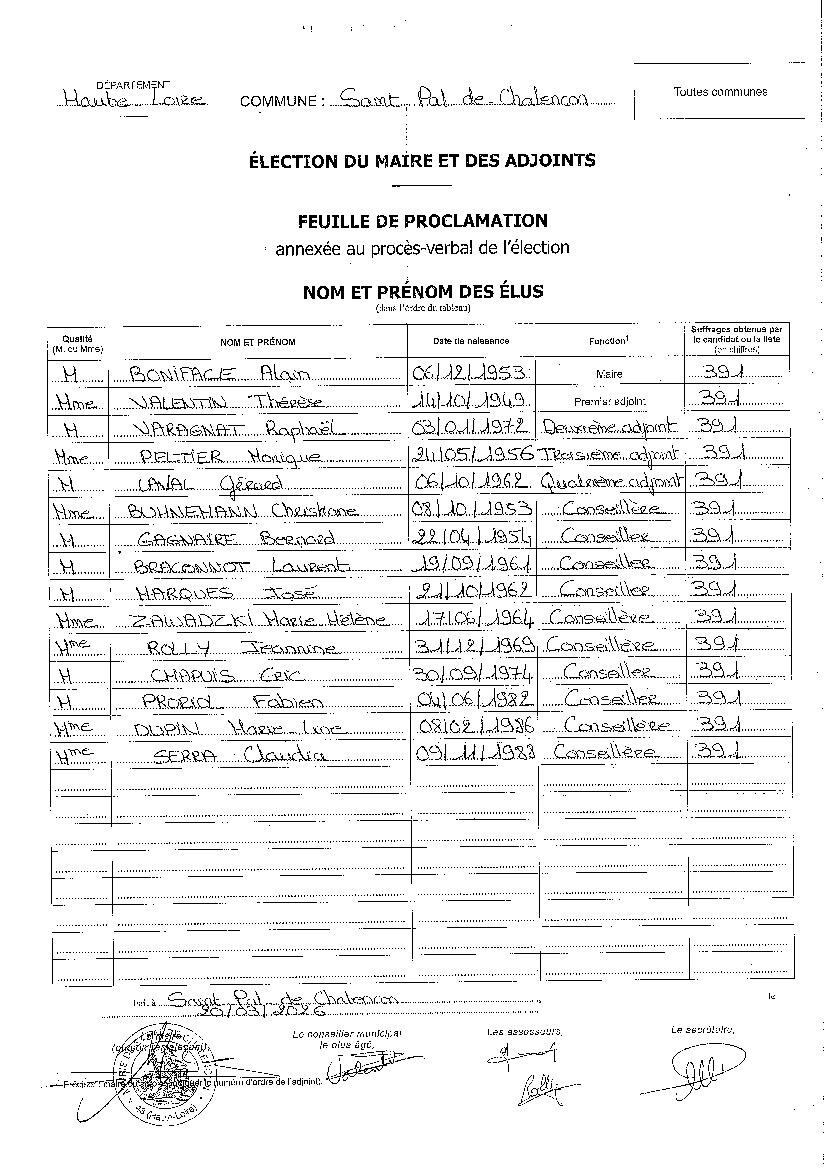 DÉPARTEMENT
Haute Loire COMMUNE : Saint Pal de Chalencon
Toutes communes
ÉLECTION DU MAIRE ET DES ADJOINTS
FEUILLE DE PROCLAMATION
annexée au procès-verbal de l'élection
NOM ET PRÉNOM DES ÉLUS
(dans l'ordre du tableau)
Qualité (M. ou Mme) NOM ET PRÉNOM Date de naissance Fonction¹ Suffrages obtenus par le candidat ou la liste (en chiffres)
M BONIFACE Alain 06/12/1953 Maire 391
Mme VALENTIN Thérèse 14/10/1949 Premier adjoint 391
M VARAGNAT Raphaël 03/01/1972 Deuxième adjoint 391
Mme PELTIER Monique 24/05/1956 Troisième adjoint 391
M LAVAL Gérard 06/10/1962 Quatrième adjoint 391
Mme BUHNEMANN Christiane 08/10/1953 Conseillère 391
M GAGNAIRE Bernard 22/04/1954 Conseiller 391
M BRACONNOT Laurent 19/09/1961 Conseiller 391
M MARQUES José 21/10/1962 Conseiller 391
Mme ZAWADZKI Marie Hélène 17/06/1964 Conseillère 391
Mme ROLLY Jeannine 31/12/1969 Conseillère 391
M CHAPUIS Eric 30/09/1974 Conseiller 391
M PRORIOL Fabien 04/06/1982 Conseiller 391
Mme DUPIN Marie Line 08/02/1986 Conseillère 391
Mme SERRA Claudia 09/11/1988 Conseillère 391
Fait à Saint Pal de Chalencon le
20/03/2026
Le conseiller municipal le plus âgé,
Les assesseurs,
Le secrétaire,
le numéro d'ordre de l'adjoint).
43 (Haute-Loire)